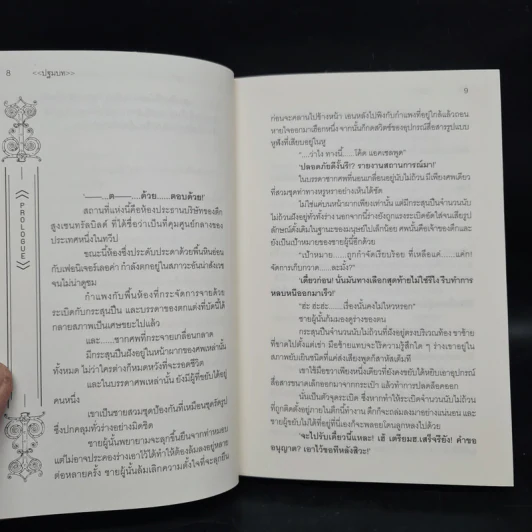 8 <<ปฐมบท>>
PROLOGUE
'——...—ต——....ด้วย......ตอบด้วย!'
สถานที่แห่งนี้คือห้องประธานบริษัทของตึก
สูงเซนทรัลบิลด์ ที่ได้ชื่อว่าเป็นที่คุมศูนย์กลางของ
ประเทศหนึ่งในทวีป
ขณะนี้ห้องซึ่งประดับประดาด้วยพื้นหินอ่อน
กับเฟอร์นิเจอร์เลอค่า กำลังตกอยู่ในสภาวะอันน่าสังเวช
จนไม่น่าดูชม
กำแพงกับพื้นห้องที่กระจัดกระจายด้วย
ระเบิดกับกระสุนปืน และบรรดาของตกแต่งที่บัดนี้ได้
กลายสภาพเป็นเศษขยะไปแล้ว
และ......ซากศพที่กระจายเกลื่อนกลาด
มีกระสุนปืนฝังอยู่ในหน้าผากของศพเหล่านั้น
ทั้งหมด ไม่ว่าใครต่างก็หมดหวังที่จะรอดชีวิต
และในบรรดาศพเหล่านั้น ยังมีผู้ที่ขยับได้อยู่
คนหนึ่ง
เขาเป็นชายสวมชุดป้องกันที่เหมือนชุดรัดรูป
ซึ่งปกคลุมทั่วร่างอย่างมิดชิด
ชายผู้นั้นพยายามจะลุกขึ้นยืนจากท่าหมอบ
แต่ไม่อาจประคองร่างเอาไว้ได้ทำให้ต้องล้มลงอยู่หลาย
ต่อหลายครั้ง ชายผู้นั้นล้มเลิกความตั้งใจที่จะลุกยืน
9
ก่อนจะคลานไปข้างหน้า เอนหลังไปพิงกับกำแพงที่อยู่ใกล้แล้วถอน
หายใจออกมาเฮือกหนึ่ง จากนั้นก็กดสวิตช์ของอุปกรณ์สื่อสารรูปแบบ
หูฟังที่เสียบอยู่ในหู
"...ว่าไง ทางนี้..... โค้ด แอคเซลพูด"
'ปลอดภัยดีงั้นรึ!? รายงานสถานการณ์มา!'
ในบรรดาซากศพที่นอนเกลื่อนอยู่นับไม่ถ้วน มีเพียงศพเดียว
ที่สวมชุดท่าทางหรูหราอย่างเห็นได้ชัด
ไม่ใช่แค่บนหน้าผากเพียงเท่านั้น แต่มีกระสุนปืนจำนวนนับ
ไม่ถ้วนฝังอยู่ทั่วทั้งร่าง นอกจากนี้ร่างยังถูกแรงระเบิดอัดใส่จนเสียรูป
ลักษณ์ดั้งเดิมในฐานะของมนุษย์ไปเสียเล็กน้อย ศพนั้นคือเจ้าของตึกและ
ยังเป็นเป้าหมายของชายผู้นี้อีกด้วย
"เป้าหมาย......ถูกกำจัดเรียบร้อย ที่เหลือแค่......แค่ก!
จัดการเก็บกวาด......ละมั้ง?"
'เดี๋ยวก่อน! นั่นมันทางเลือกสุดท้ายไม่ใช่รึไง รีบทำการ
หลบหนีออกมาเร็ว!'
"ฮ่ะ ฮ่ะฮ่ะ......เรื่องนั้นคงไม่ไหวหรอก"
ชายผู้นั้นก้มมองดูร่างของตน
กระสุนปืนจำนวนนับไม่ถ้วนที่ฝังอยู่ตรงบริเวณท้อง ขาซ้าย
ที่ขาดไปตั้งแต่เข่า มือซ้ายแทบจะไร้ความรู้สึกใด ๆ ร่างเขาอยู่ใน
สภาพยับเยินชนิดที่แค่ส่งเสียงพูดก็สาหัสเต็มที
เขาใช้มือขวาเพียงหนึ่งเดียวที่ยังคงขยับได้หยิบเอาอุปกรณ์
สื่อสารขนาดเล็กออกมาจากกระเป๋า แล้วทำการปลดล็อคออก
นั่นเป็นตัวจุดระเบิด ที่ซึ่งจะทำให้ระเบิดจำนวนนับไม่ถ้วน
ที่ถูกติดตั้งอยู่ภายในตึกนี้ทำงาน ตึกก็จะถล่มลงมาอย่างแน่นอน และ
ชายผู้ขยับไม่ได้ที่ยังอยู่นี่เองก็จะพลอยโดนลูกหลงไปด้วย
'จะไปรับเดี๋ยวนี้แหละ! เฮ้ เตรียมฮ.เสร็จรึยัง! คำขอ
อนุญาต? เอาไว้ขอทีหลังสิวะ!'